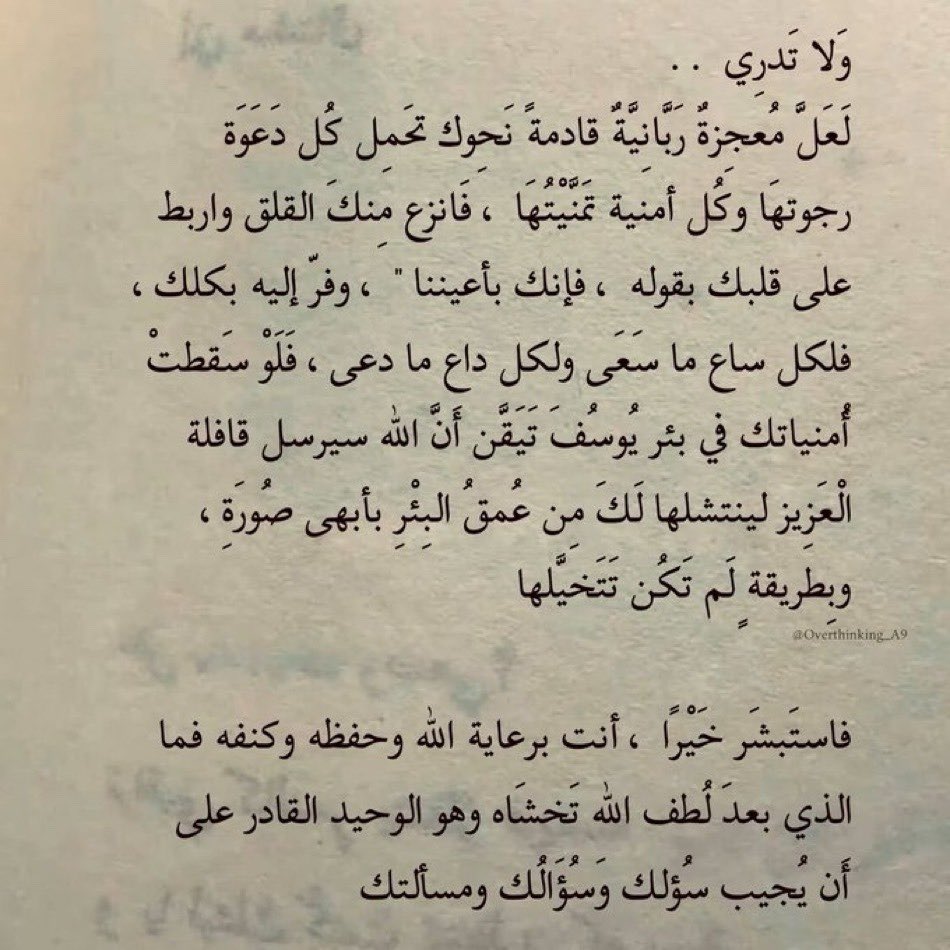 وَلا تَدرِي . .
لَعَلَّ مُعجِزةٌ رَبَّانِيَّةٌ قادمةً نَحوِك تحَمِل كُل دَعَوَة
رجوتهَا وكُل أمنية تمَنَّيْتُهَا ، فَانزع مِنكَ القلق واربط
على قلبك بقوله ، فإنك بأعيننا " ، وفرّ إليه بكلك ،
فلكل ساع ما سَعَى ولكل داع ما دعى ، فَلَوْ سقطتْ
أُمنياتك في بئر يُوسُفَ تَيَقَّن أَنَّ الله سيرسل قافلة
الْعَزِيز لينتشلها لَكَ مِن عُمقُ البِئْرِ بأبهى صُورَةِ ،
وبِطريقةٍ لَم تَكُن تَتَخيَّلها
@Overthinking_A9
فاستَبشَر خَيْرًا ، أنت برعاية الله وحفظه وكنفه فما
الذي بعدَ لُطف الله تَخشَاه وهو الوحيد القادر على
أَن يُجيب سُؤلك وَسُؤَالُك ومسألتك